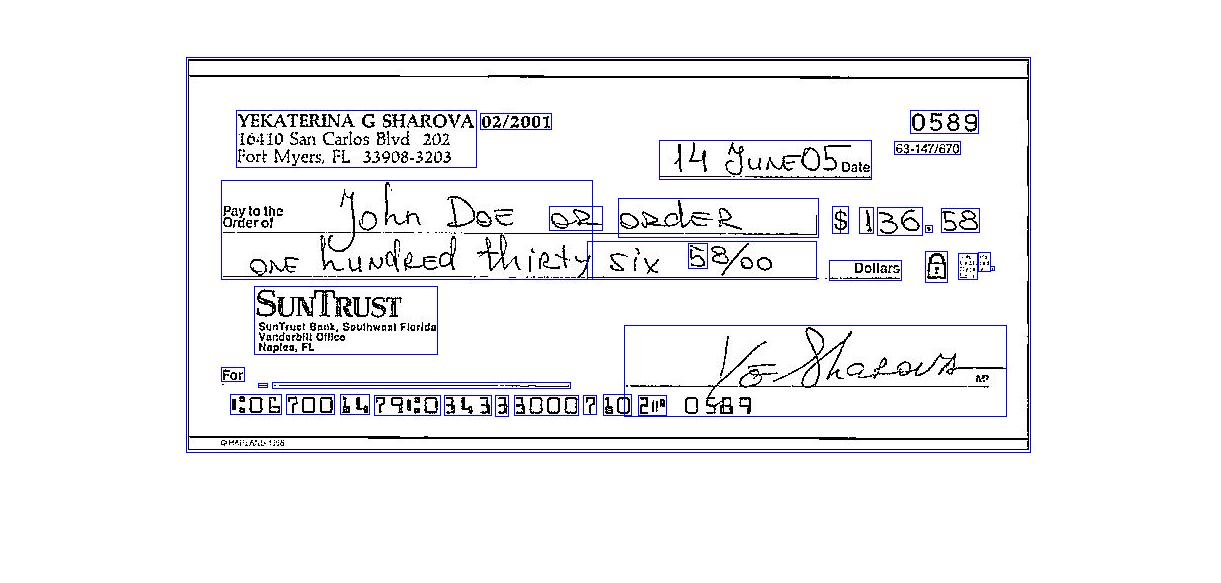 YEKATERINA G SHAROVA 02/2001
0589
16410 San Carlos Blvd 202
Fort Myers, FL 33908-3203
63-147/670
14 JUNE 05 Date
Pay to the
Order of John DOE OR ORDER $ 136.58
ONE hUNDRED thirty six 58/00 Dollars
SUNTRUST
SunTrust Bank, Southwest Florida
Vanderbilt Office
Naples, FL
For
YG Sharova
MP
⑆067001479⑆0343330007102⑈ 0589